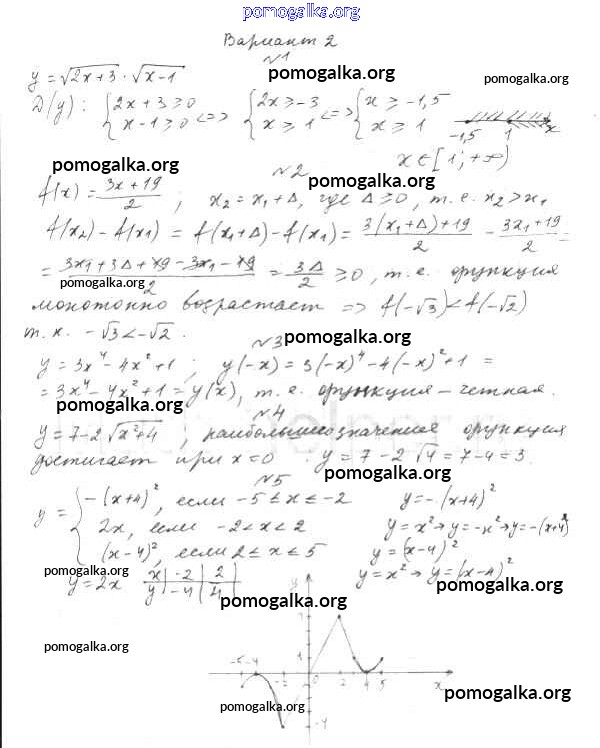 pomogalka.org
Вариант 2
№1
y = √(2x+3) · √(x-1)
pomogalka.org
pomogalka.org
D(y): {2x+3 ≥ 0 {x-1 ≥ 0 <=> {2x ≥ -3 {x ≥ 1 <=> {x ≥ -1,5 {x ≥ 1
-1,5 1 x
x ∈ [1; +∞)
pomogalka.org
№2
pomogalka.org
f(x) = (3x+19)/2 ; x₂ = x₁ + Δ, где Δ ≥ 0, т.е. x₂ > x₁
f(x₂) - f(x₁) = f(x₁+Δ) - f(x₁) = (3(x₁+Δ)+19)/2 - (3x₁+19)/2 =
= (3x₁+3Δ+19-3x₁-19)/2 = 3Δ/2 ≥ 0, т.е. функция
pomogalka.org
монотонно возрастает => f(-√3) < f(-√2)
т.к. -√3 < -√2 .
№3
pomogalka.org
y = 3x⁴ - 4x² + 1 ; y(-x) = 3(-x)⁴ - 4(-x)² + 1 =
= 3x⁴ - 4x² + 1 = y(x), т.е. функция - четная.
pomogalka.org
№4
y = 7 - 2√(x²+4) , наибольшее значение функция
достигает при x = 0 y = 7 - 2√4 = 7 - 4 = 3.
№5
pomogalka.org
y = { -(x+4)², если -5 ≤ x ≤ -2 y = -(x+4)²
2x, если -2 < x < 2 y = x² → y = -x² → y = -(x+4)²
(x-4)², если 2 ≤ x ≤ 5 y = (x-4)²
pomogalka.org
y = 2x x | -2 | 2 y = x² → y = (x-4)²
y | -4 | 4
pomogalka.org
pomogalka.org
y
pomogalka.org
-5 -4 -2 0 2 4 5 x
1
pomogalka.org
pomogalka.org
-4